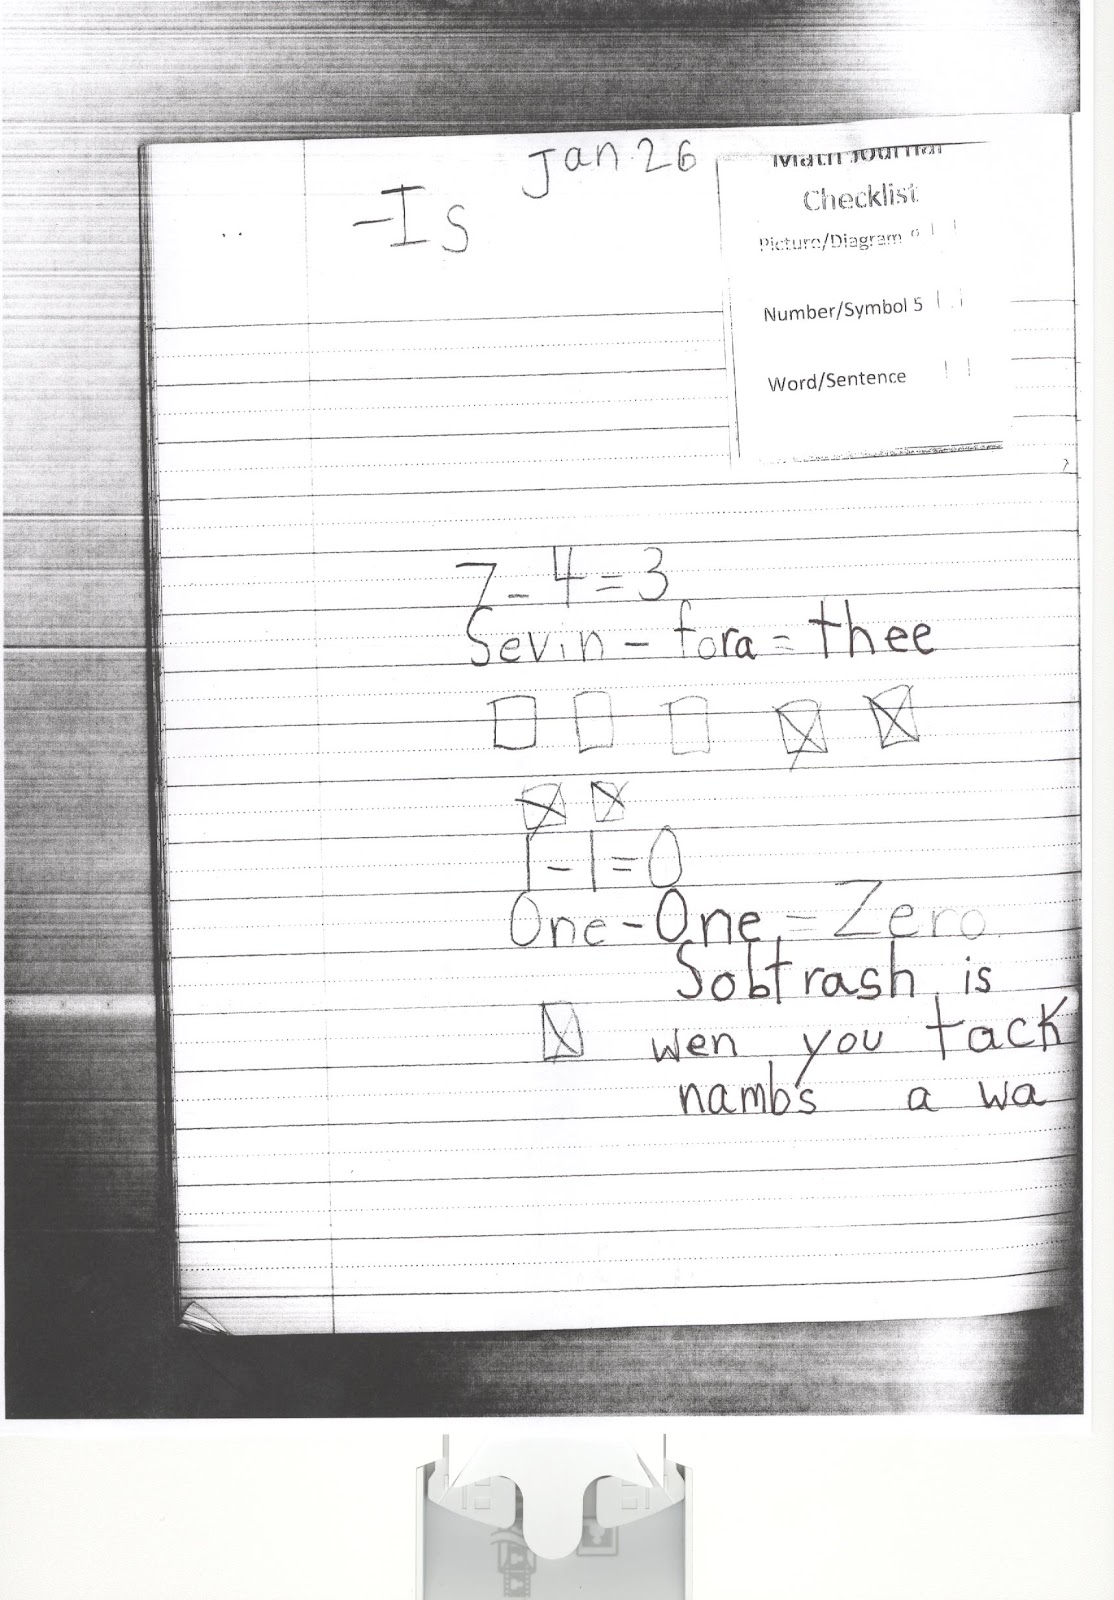 Jan 26
- Is
Math Journal
Checklist
Picture/Diagram
Number/Symbol 5
Word/Sentence
7-4=3
Sevin - fora = thee
1-1=0
One - One = Zero
Sobtrash is
wen you tack
nambs a wa